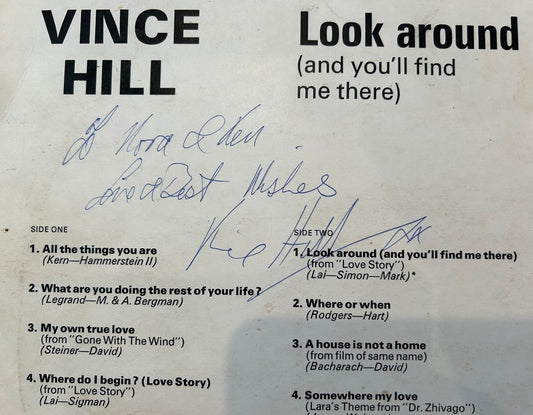 VINCE
HILL
Look around
(and you'll find
me there)
To Nora & Ken
Love & Best Wishes
Vince Hill xx
SIDE ONE
1. All the things you are
(Kern—Hammerstein II)
2. What are you doing the rest of your life?
(Legrand—M. & A. Bergman)
3. My own true love
(from "Gone With The Wind")
(Steiner—David)
4. Where do I begin? (Love Story)
(from "Love Story")
(Lai—Sigman)
SIDE TWO
1. Look around (and you'll find me there)
(from "Love Story")
(Lai—Simon—Mark)*
2. Where or when
(Rodgers—Hart)
3. A house is not a home
(from film of same name)
(Bacharach—David)
4. Somewhere my love
(Lara's Theme from "Dr. Zhivago")